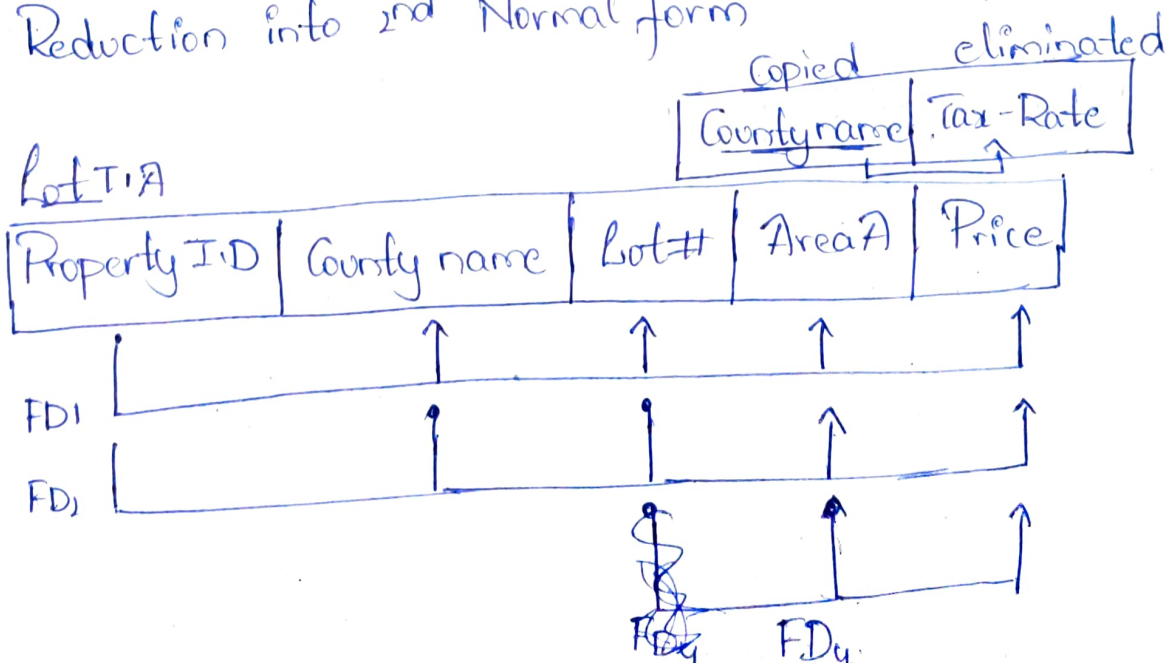 Reduction into 2nd Normal form
Copied eliminated
County name Tax-Rate
Lot T.A
Property I.D County name Lot# Area A Price
FD1
FD2
FD4 FD4.